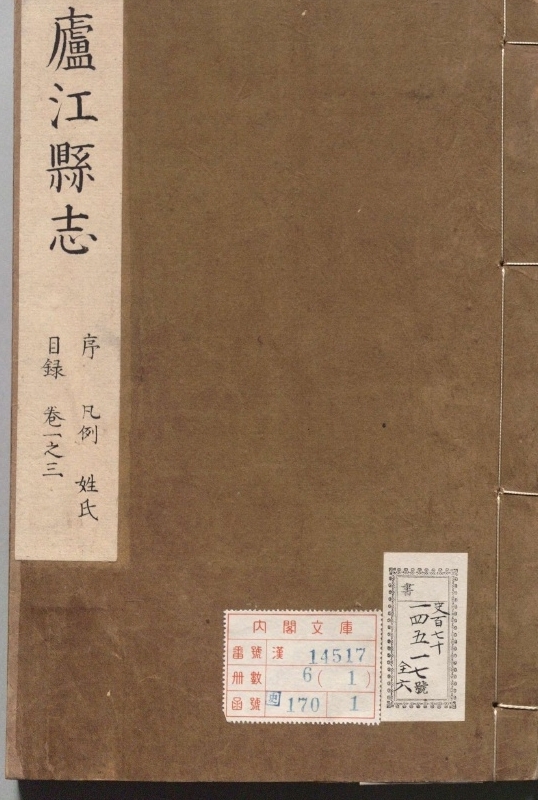 廬江縣志
序 凡例 姓氏
目録 卷一之三
內閣文庫
番號 漢 14517
冊數 6(1)
函號 史 170 1
書
史百七十
一四五一七號
全六